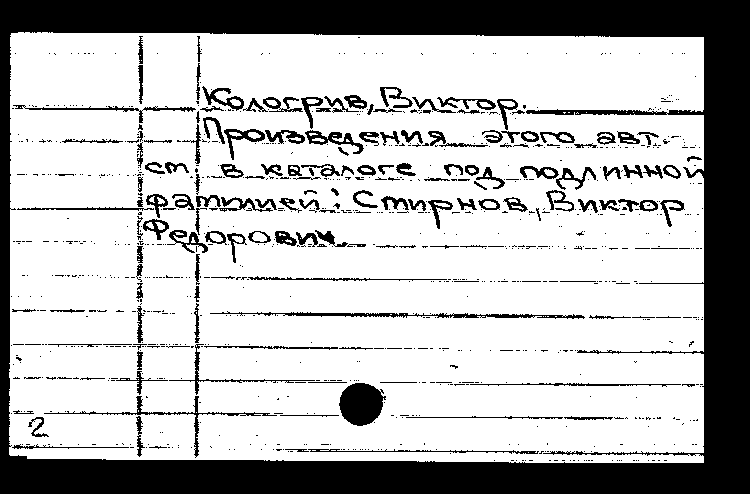 Кологрив, Виктор.
Произведения этого авт.
см. в каталоге под подлинной
фамилией: Смирнов, Виктор
Федорович.
2